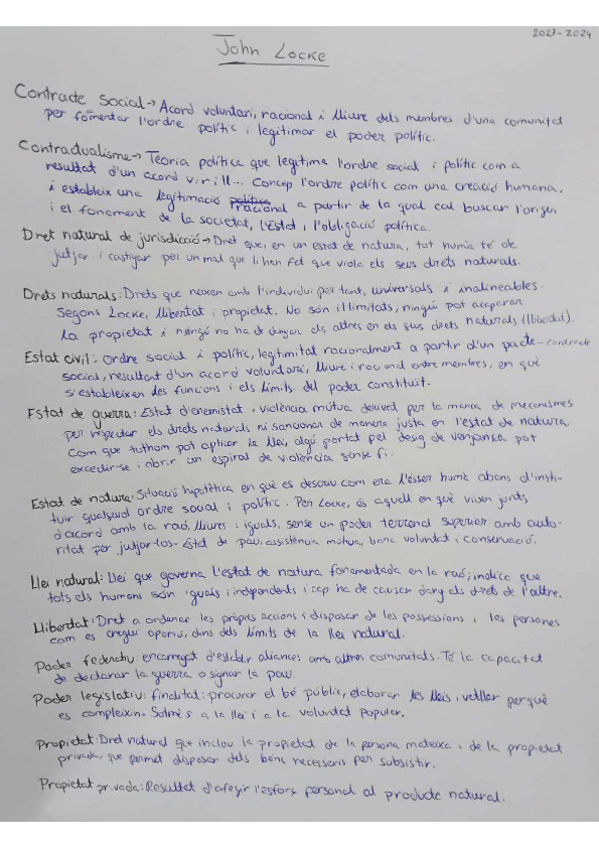 2023-2024
John Locke
Contracte Social → Acord voluntari, racional i lliure dels membres d'una comunitat
per fomentar l'ordre polític i legitimar el poder polític.
Contractualisme → Teoria política que legitima l'ordre social i polític com a
resultat d'un acord v i r i ll... Concep l'ordre polític com una creació humana,
i estableix una legitimació racional a partir de la qual cal buscar l'origen
i el fonament de la societat, l'Estat i l'obligació política.
Dret natural de jurisdicció → Dret que, en un estat de natura, tot humà té de
jutjar i castigar per un mal que li han fet que viola els seus drets naturals.
Drets naturals: Drets que neixen amb l'individu per tant, universals i inalineables.
Segons Locke, llibertat i propietat. No són il·limitats; ningú pot acaparar
la propietat i ningú no ha de danyar els altres en els seus drets naturals (llibertat).
Estat civil: ordre social i polític, legitimitat racionalment a partir d'un pacte-contracte
social, resultat d'un acord voluntari, lliure i racional entre membres, en què
s'estableixen des funcions i els límits del poder constituït.
Estat de guerra: Estat d'enemistat i violència mútua derivat per la manca de mecanismes
per respectar els drets naturals ni sancionar de manera justa en l'estat de natura.
Com que tothom pot aplicar la llei, algú portat pel desig de venjança pot
excedir-se i obrir un espiral de violència sense fi.
Estat de natura: Situació hipotètica en què es descriu com era l'ésser humà abans d'insti-
tuir qualsevol ordre social i polític. Per Locke, és aquell en què viuen junts
d'acord amb la raó, lliures i iguals, sense un poder terrenal superior amb auto-
ritat per jutjar-los. Estat de pau, assistència mútua, bona voluntat i conservació.
Llei natural: llei que governa l'estat de natura fonamentada en la raó; indica que
tots els humans són iguals i independents i cap ha de causar dany als drets de l'altre.
Llibertat: Dret a ordenar les pròpies accions i disposar de les possessions i les persones
com es cregui oportú, dins dels límits de la llei natural.
Poder federatiu: encarregat d'establir aliances amb altres comunitats. Té la capacitat
de declarar la guerra o signar la pau.
Poder legislatiu: finalitat: procurar el bé públic, elaborar les lleis i vetllar perquè
es compleixin. Sotmès a la llei i a la voluntat popular.
Propietat: Dret natural que inclou la propietat de la persona mateixa i de la propietat
privada, que permet disposar dels béns necessaris per subsistir.
Propietat privada: Resultat d'afegir l'esforç personal al producte natural.